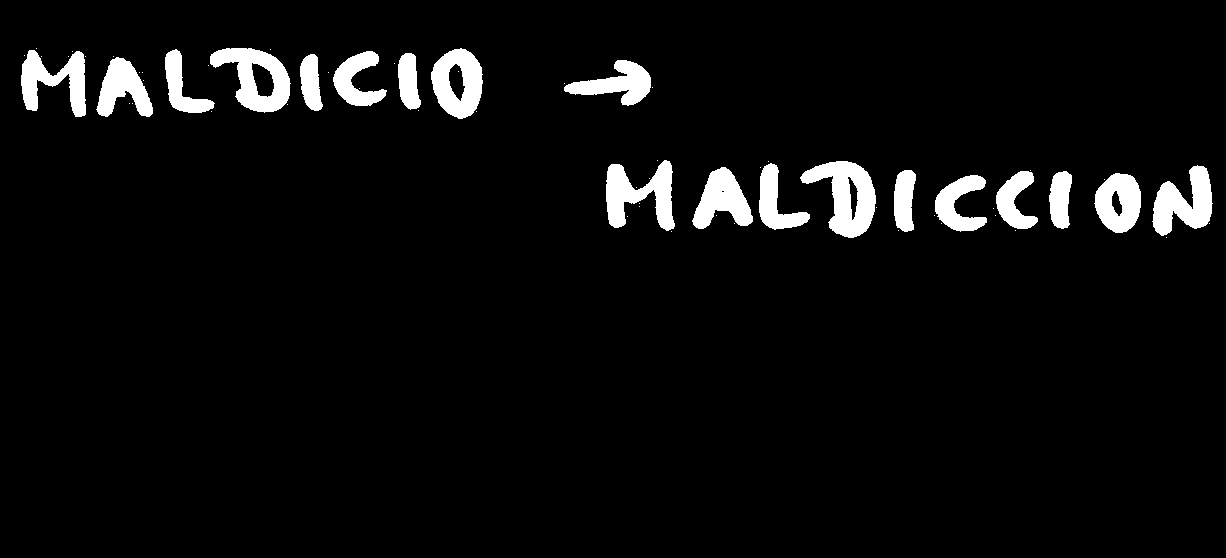 MALDICIO →
MALDICCION